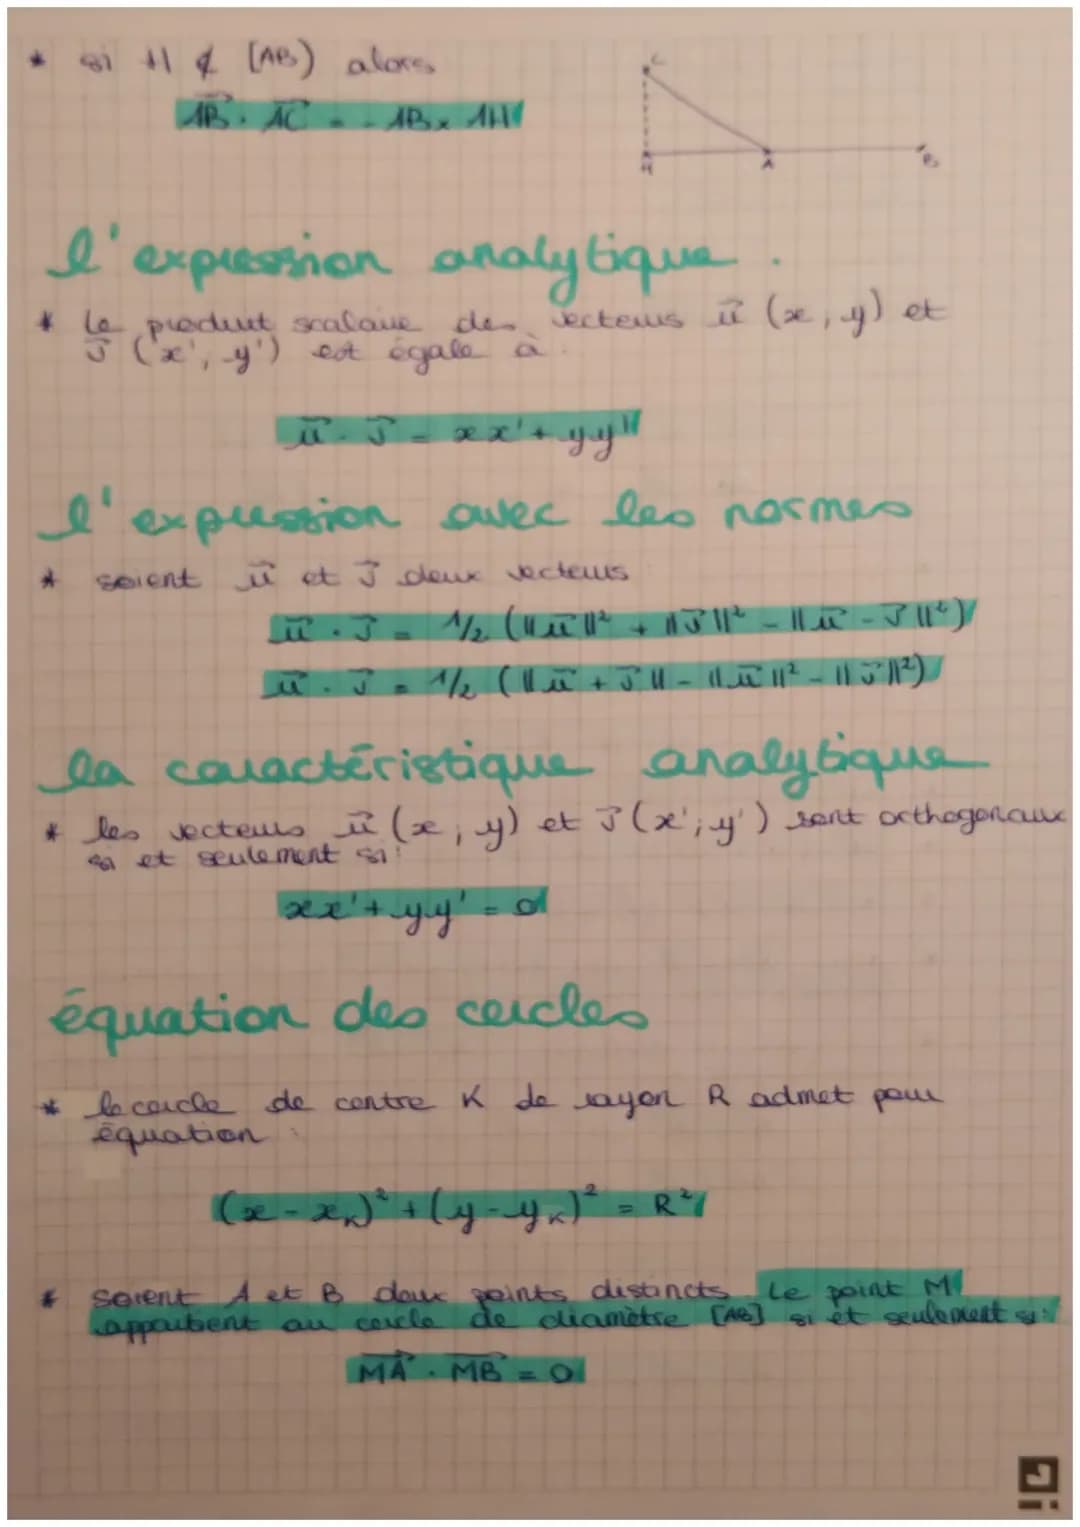 * si H ∉ [AB) alors
AB⃗ . AC⃗ = - AB x AH
C
H A B
l'expression analytique.
* le produit scalaire des vecteurs u⃗ (x, y) et
v⃗ (x', y') est égale à :
u⃗ . v⃗ = xx' + yy'
l'expression avec les normes
* soient u⃗ et v⃗ deux vecteurs
u⃗ . v⃗ = 1/2 (||u⃗||² + ||v⃗||² - ||u⃗ - v⃗||²)
u⃗ . v⃗ = 1/2 (||u⃗ + v⃗|| - ||u⃗||² - ||v⃗||²)
la caractéristique analytique
* les vecteurs u⃗ (x, y) et v⃗ (x'; y') sont orthogonaux
si et seulement si:
xx' + yy' = 0
équation des cercles
* le cercle de centre K de rayon R admet pour
équation :
(x - xK)² + (y - yK)² = R²
* soient A et B deux points distincts. Le point M
appartient au cercle de diamètre [AB] si et seulement si:
MA⃗ . MB⃗ = 0